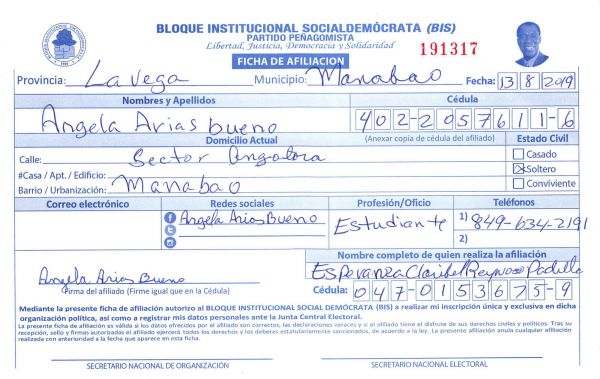 BLOQUE INSTITUCIONAL SOCIALDEMÓCRATA (BIS)
PARTIDO PEÑAGOMISTA
Libertad, Justicia, Democracia y Solidaridad
FICHA DE AFILIACION
191317
Provincia: La vega Municipio: Manabao Fecha: 13 8 2019
Nombres y Apellidos Cédula
Angela Arias bueno 402-2057611-6
Domicilio Actual (Anexar copia de cédula del afiliado) Estado Civil
Calle: Sector Angostura Casado
#Casa / Apt. / Edificio: Soltero
Barrio / Urbanización: Manabao Conviviente
Correo electrónico Redes sociales Profesión/Oficio Teléfonos
Angela Arias Bueno Estudiante 1) 849-634-2191
2)
Nombre completo de quien realiza la afiliación
Angela Arias Bueno Esperanza Claribel Reynoso Padilla
Firma del afiliado (Firme igual que en la Cédula) Cédula: 047-0153675-9
Mediante la presente ficha de afiliación autorizo al BLOQUE INSTITUCIONAL SOCIAL DEMÓCRATA (BIS) a realizar mi inscripción única y exclusiva en dicha
organización política, así como a registrar mis datos personales ante la Junta Central Electoral.
La presente ficha de afiliación es válida si los datos ofrecidos por el afiliado son correctos, las declaraciones veraces y si el afiliado tiene el disfrute de sus derechos civiles y políticos. Tras su
recepción, sello y firmas autorizadas el afiliado ejercerá todos los derechos y los deberes estatutariamente sancionados, de acuerdo a la ley. La presente afiliación anula cualquier afiliación
realizada con anterioridad a la fecha que aparece en esta ficha.
SECRETARIO NACIONAL DE ORGANIZACIÓN SECRETARIO NACIONAL ELECTORAL